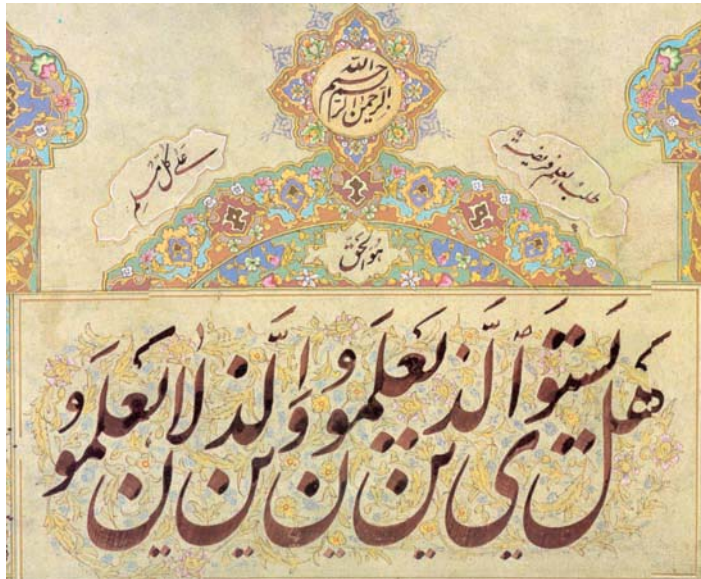 بسم الله
الرحمن الرحيم
طلب العلم فريضة
على كل مسلم
هو الحق
هل يستوي الذين يعلمون والذين لا يعلمون